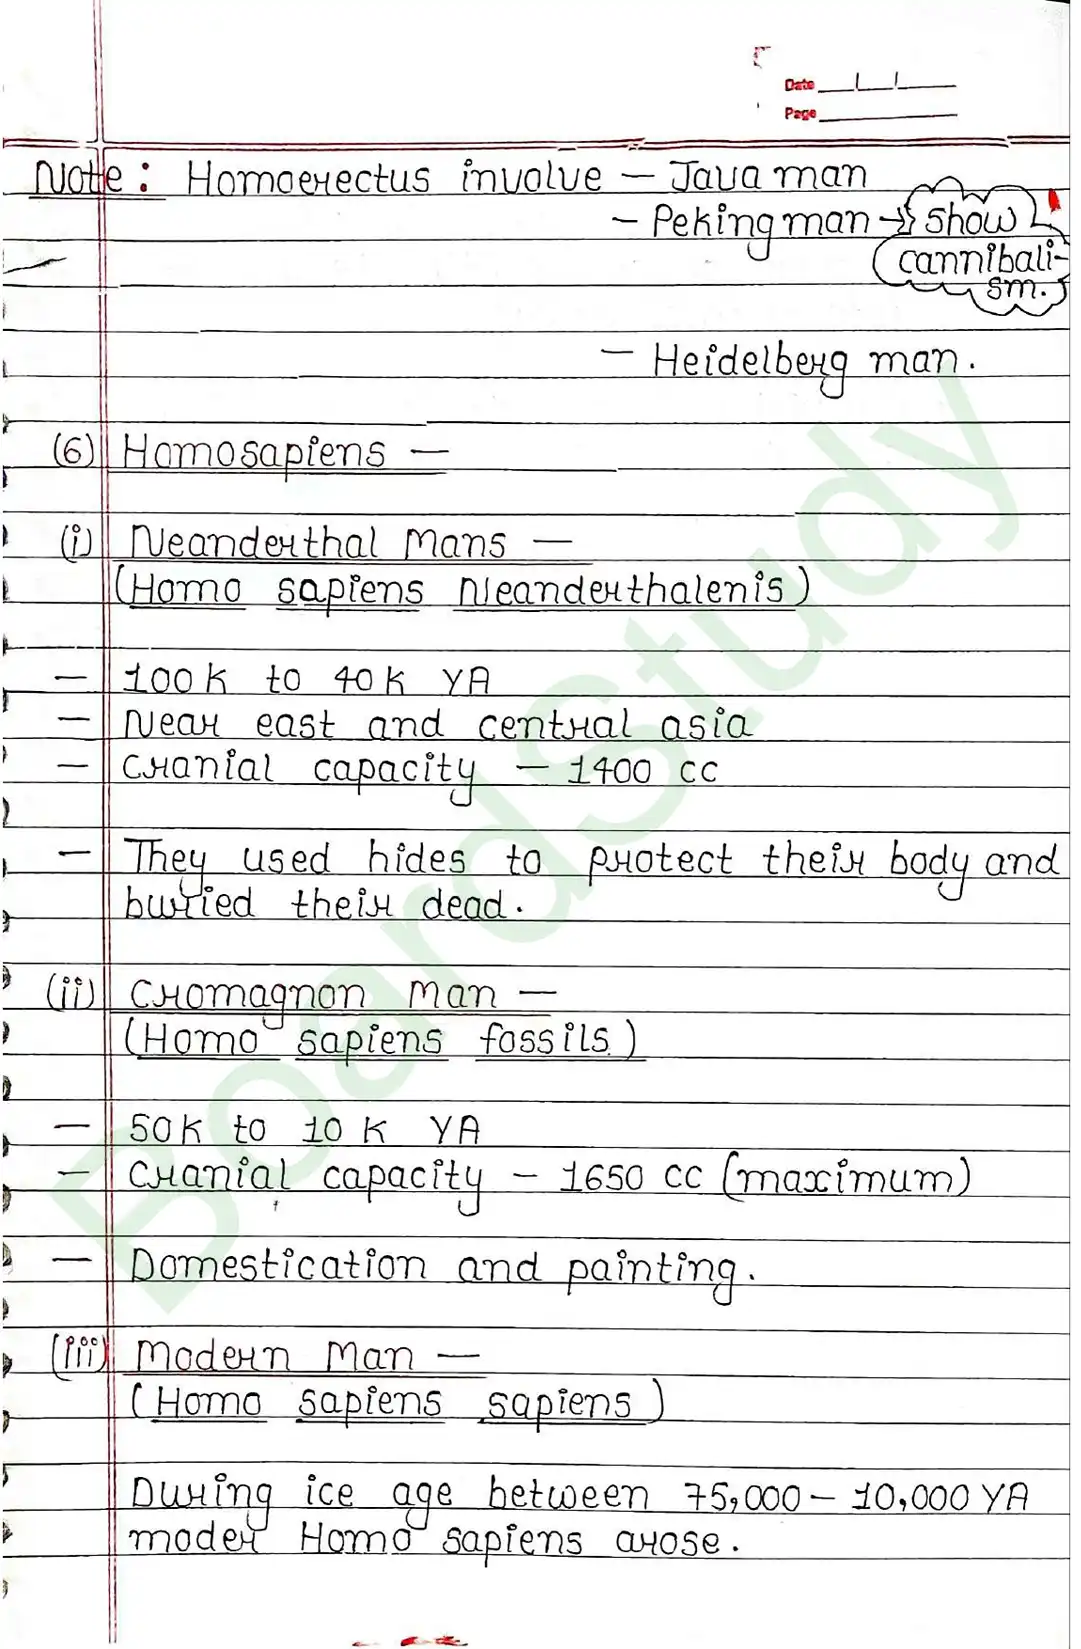 Date
Page
Note: Homoerectus involve – Java man
– Peking man → Show
cannibali-
sm.
– Heidelberg man.
(6) Homosapiens –
(i) Neanderthal Mans –
(Homo sapiens Neanderthalenis)
– 100K to 40K YA
– Near east and central asia
– Cranial capacity – 1400 cc
– They used hides to protect their body and
buried their dead.
(ii) Cromagnon Man –
(Homo sapiens fossils)
– 50K to 10K YA
– Cranial capacity – 1650 cc (maximum)
– Domestication and painting.
(iii) Modern Man –
(Homo sapiens sapiens)
During ice age between 75,000 – 10,000 YA
moder Homo sapiens arose.
BoardStudy